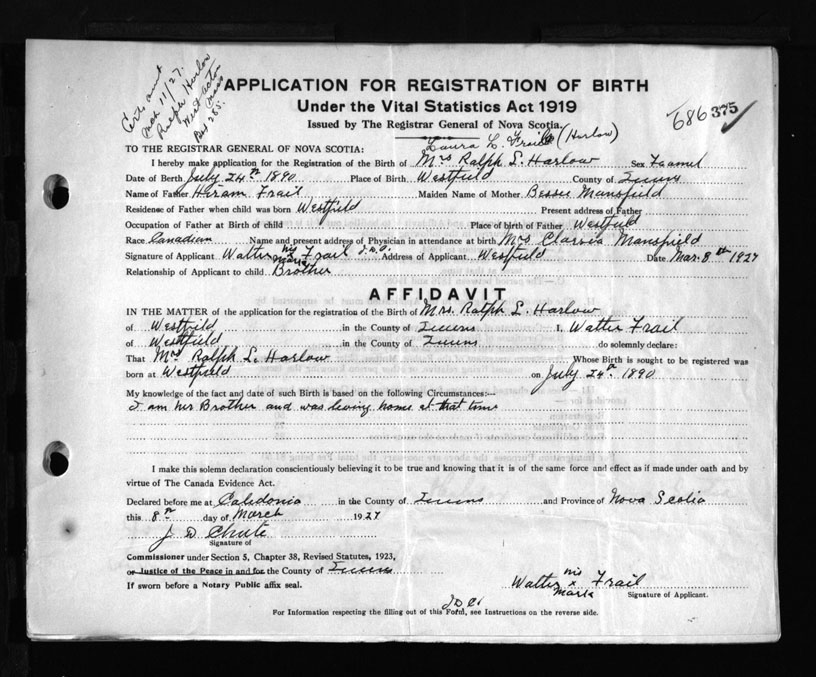 Certs sent
Mch 11/27.
Ralph Harlow
West acton
Mass
Box 285.
APPLICATION FOR REGISTRATION OF BIRTH
Under the Vital Statistics Act 1919
Issued by The Registrar General of Nova Scotia.
686 375
Laura L. Frail (Harlow)
TO THE REGISTRAR GENERAL OF NOVA SCOTIA:
I hereby make application for the Registration of the Birth of Mrs Ralph L. Harlow Sex Feamel
Date of Birth July 24th 1890 Place of Birth Westfield County of Queens
Name of Father Hiram Frail Maiden Name of Mother Bessee Mansfield
Residense of Father when child was born Westfield Present address of Father
Occupation of Father at Birth of child Place of birth of Father Westfield
Race Canadian Name and present address of Physician in attendance at birth Mrs Mansfield
Signature of Applicant Walter his x mark Frail J.D.C. Address of Applicant Westfield Date Mar. 8th 1927
Relationship of Applicant to child Brother
AFFIDAVIT
IN THE MATTER of the application for the registration of the Birth of Mrs. Ralph L. Harlow
of Westfield in the County of Queens I, Walter Frail
of Westfield in the County of Queens do solemnly declare:
That Mrs Ralph L. Harlow Whose Birth is sought to be registered was
born at Westfield on July 24th 1890
My knowledge of the fact and date of such Birth is based on the following Circumstances:—
I am her Brother and was leving home at that time
I make this solemn declaration conscientiously believing it to be true and knowing that it is of the same force and effect as if made under oath and by
virtue of The Canada Evidence Act.
Declared before me at Calidonia in the County of Queens and Province of Nova Scotia
this 8th day of March 1927
J D Chute
Signature of
Commissioner under Section 5, Chapter 38, Revised Statutes, 1923,
or Justice of the Peace in and for the County of Queens
If sworn before a Notary Public affix seal.
Walter his x mark Frail
Signature of Applicant.
J.D.C.
For Information respecting the filling out of this Form, see Instructions on the reverse side.